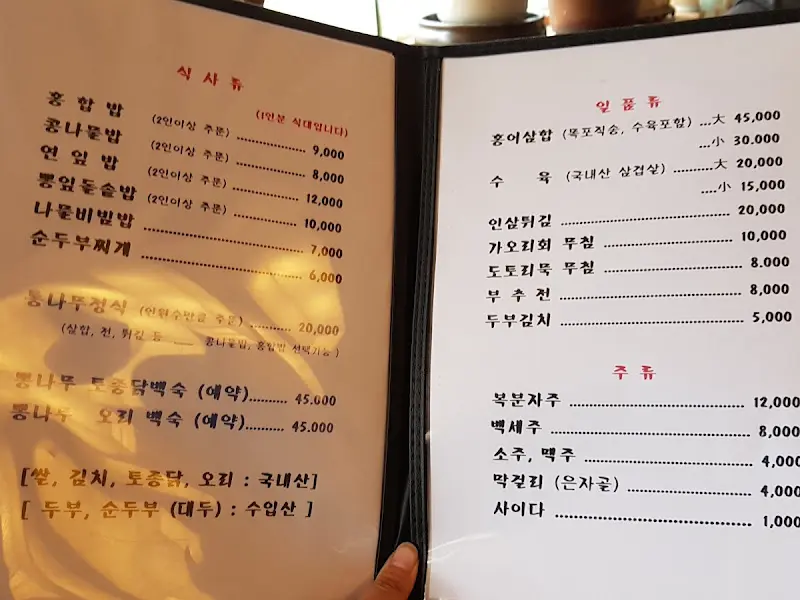 식사류
(1인분 식대입니다)
홍합밥 (2인이상 주문) ........ 9,000
콩나물밥 (2인이상 주문) ........ 8,000
연잎밥 (2인이상 주문) ........ 12,000
뽕잎돌솥밥 (2인이상 주문) ........ 10,000
나물비빔밥 ........ 7,000
순두부찌게 ........ 6,000
뽕나무정식 (인원수만큼 주문) ........ 20,000
(삼합, 전, 튀김 등 ...... 콩나물밥, 홍합밥 선택가능)
뽕나무 토종닭백숙 (예약) ........ 45.000
뽕나무 오리 백숙 (예약) ........ 45.000
[쌀, 김치, 토종닭, 오리 : 국내산]
[ 두부, 순두부 (대두) : 수입산 ]
일품류
홍어삼합 (목포직송, 수육포함) ...大 45,000
....小 30.000
수 육 (국내산 삼겹살) ........大 20,000
....小 15,000
인삼튀김 ........ 20,000
가오리회 무침 ........ 10,000
도토리묵 무침 ........ 8.000
부추전 ........ 8,000
두부김치 ........ 5,000
주류
복분자주 ........ 12,000
백세주 ........ 8,000
소주, 맥주 ........ 4,000
막걸리 (은자골) ........ 4,000
사이다 ........ 1,000